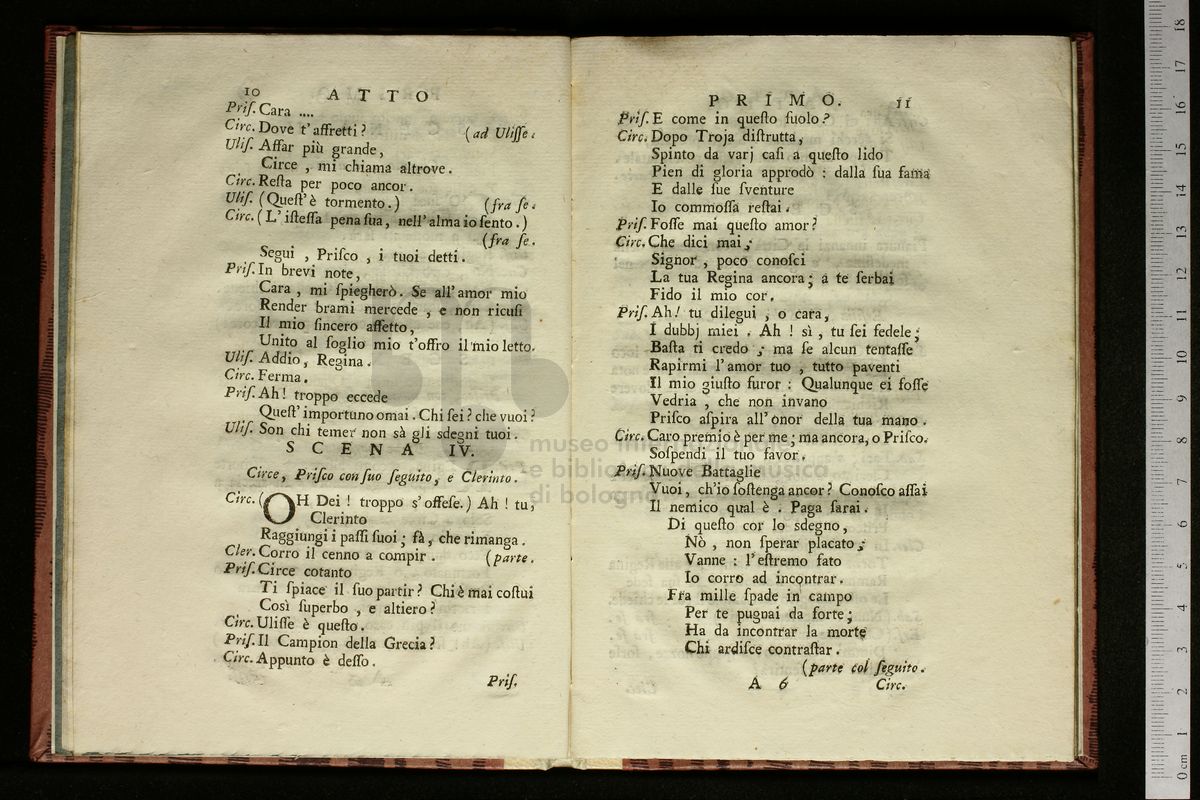 10 ATTO
Priſ. Cara ....
Circ. Dove t' affretti ? (ad Uliſſe.
Uliſ. Affar più grande,
Circe , mi chiama altrove.
Circ. Reſta per poco ancor.
Uliſ. (Queſt' è tormento.) (fra ſe.
Circ. ( L' iſteſſa pena ſua, nell' alma io ſento.)
(fra ſe.
Segui , Priſco , i tuoi detti.
Priſ. In brevi note,
Cara , mi ſpiegherò. Se all' amor mio
Render brami mercede , e non ricuſi
Il mio ſincero affetto,
Unito al ſoglio mio t'offro il mio letto.
Uliſ. Addio, Regina.
Circ. Ferma.
Priſ. Ah! troppo eccede
Queſt' importuno omai. Chi ſei? che vuoi?
Uliſ. Son chi temer non sà gli sdegni tuoi.
SCENA IV.
Circe, Priſco con ſuo ſeguito, e Clerinto.
Circ. (OH Dei ! troppo s' offeſe.) Ah ! tu,
Clerinto
Raggiungi i paſſi ſuoi ; fà, che rimanga.
Cler. Corro il cenno a compir . (parte.
Priſ. Circe cotanto
Ti ſpiace il ſuo partir? Chi è mai coſtui
Così ſuperbo , e altiero?
Circ. Uliſſe è queſto.
Priſ. Il Campion della Grecia?
Circ. Appunto è deſſo.
Priſ.
PRIMO. 11
Priſ. E come in queſto ſuolo?
Circ. Dopo Troja diſtrutta,
Spinto da varj caſi a queſto lido
Pien di gloria approdò : dalla ſua fama
E dalle ſue ſventure
Io commoſſa reſtai.
Priſ. Foſſe mai queſto amor?
Circ. Che dici mai;
Signor , poco conoſci
La tua Regina ancora; a te ſerbai
Fido il mio cor.
Priſ. Ah! tu dilegui , o cara,
I dubbj miei . Ah ! sì , tu ſei fedele;
Baſta ti credo ; ma ſe alcun tentaſſe
Rapirmi l'amor tuo , tutto paventi
Il mio giuſto furor : Qualunque ei foſſe
Vedria , che non invano
Priſco aſpira all' onor della tua mano.
Circ. Caro premio è per me; ma ancora, o Priſco.
Soſpendi il tuo favor.
Priſ. Nuove Battaglie
Vuoi, ch'io ſoſtenga ancor? Conoſco aſſai
Il nemico qual è . Paga ſarai.
Di queſto cor lo sdegno,
Nò , non ſperar placato;
Vanne : l'eſtremo fato
Io corro ad incontrar.
Fra mille ſpade in campo
Per te pugnai da forte;
Ha da incontrar la morte
Chi ardiſce contraſtar.
(parte col ſeguito.
A 6 Circ.
museo internazionale
e biblioteca della musica
di bologna
0 cm 1 2 3 4 5 6 7 8 9 10 11 12 13 14 15 16 17 18